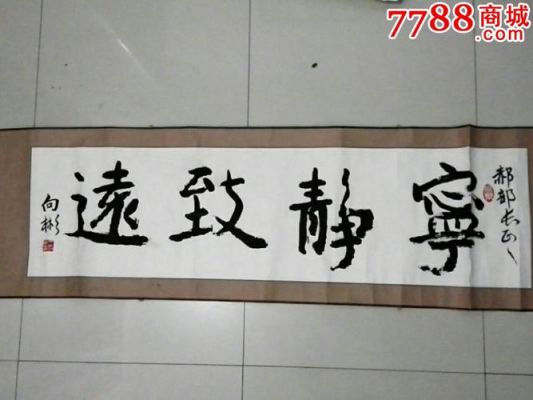 7788商城
.com
郝部长正
寧靜致遠
向彬